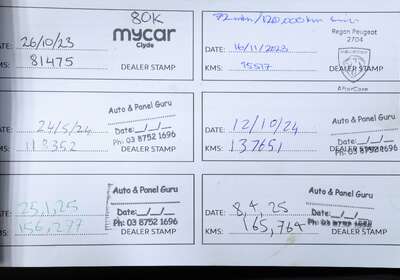 80K
mycar
Clyde
DATE: 26/10/23
KMS: 81475
DEALER STAMP
72 mth/120,000km
Regan Peugeot
2704
DATE: 16/11/2023
KMS:
DEALER STAMP
AfterCare
DATE: 24/5/24
KMS: 118352
Auto & Panel Guru
Date:__/__/__
Ph: 03 8752 1696
DEALER STAMP
DATE: 12/10/24
KMS: 137651
Auto & Panel Guru
Date:__/__/__
Ph: 03 8752 1696
DEALER STAMP
DATE: 25,1,25
KMS: 156,277
Auto & Panel Guru
Date:__/__/__
Ph: 03 8752 1696
DEALER STAMP
DATE: 8,4,25
KMS: 165,764
Auto & Panel Guru
Date:__/__/__
Ph: 03 8752 1696
DEALER STAMP